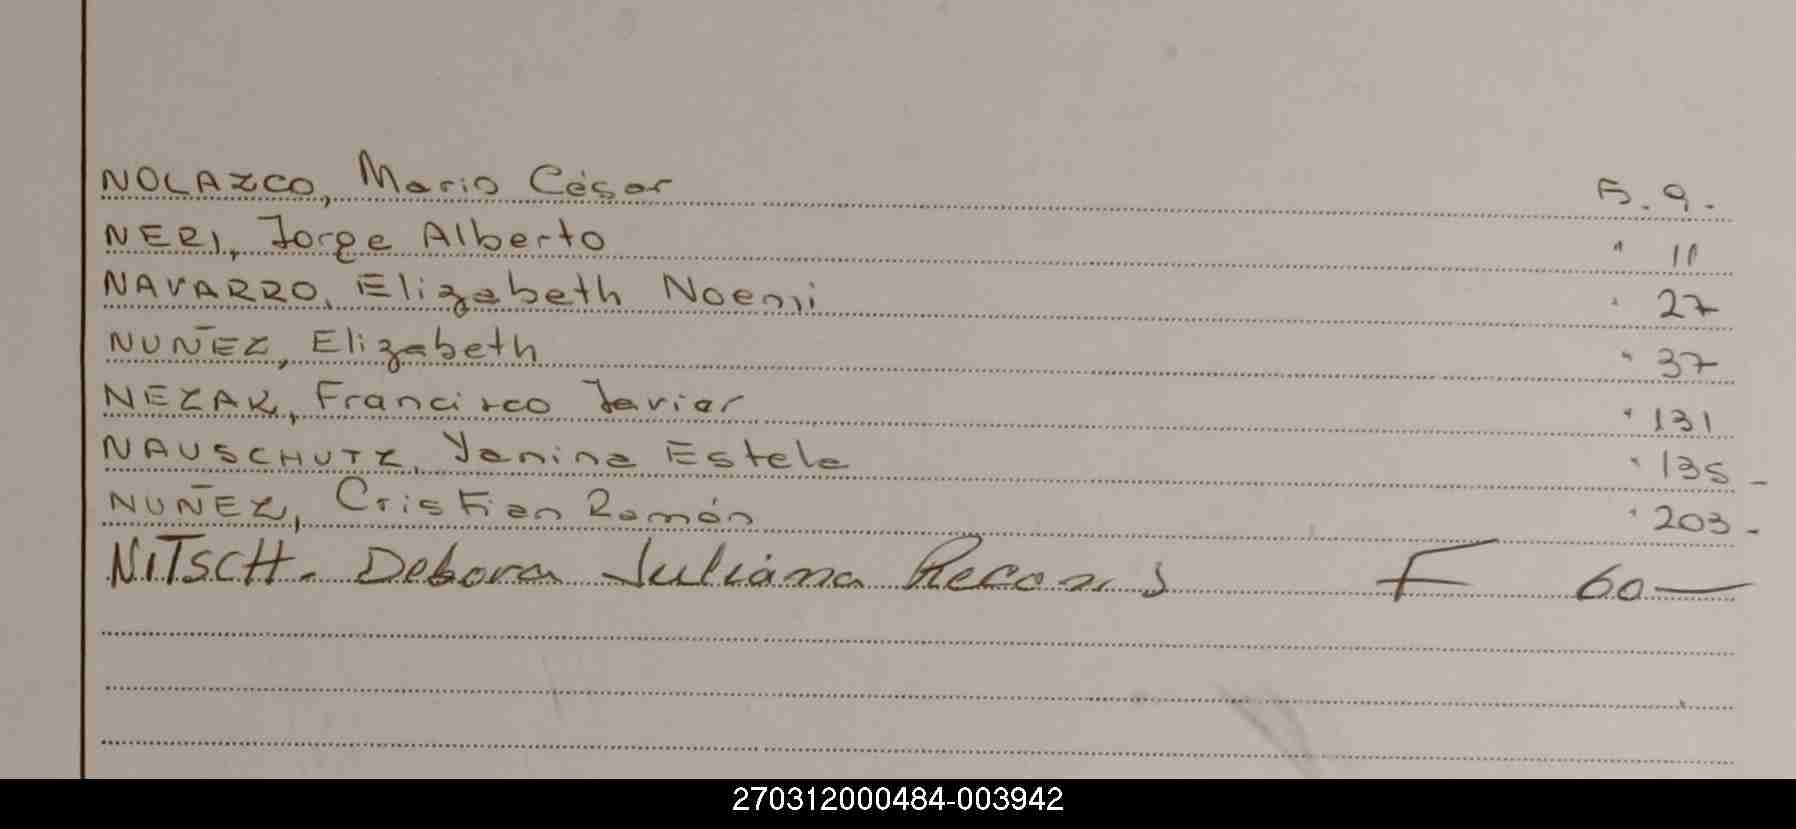 NOLAZCO, Mario César F. 9.
NERI, Jorge Alberto " 11
NAVARRO, Elizabeth Noemi " 27
NUÑEZ, Elizabeth " 37
NEZAK, Francisco Javier " 131
NAUSCHUTZ, Yanina Estela " 135 -
NUÑEZ, Cristian Ramón " 203 -
NITSCH. Debora Juliana F 60 —
270312000484-003942